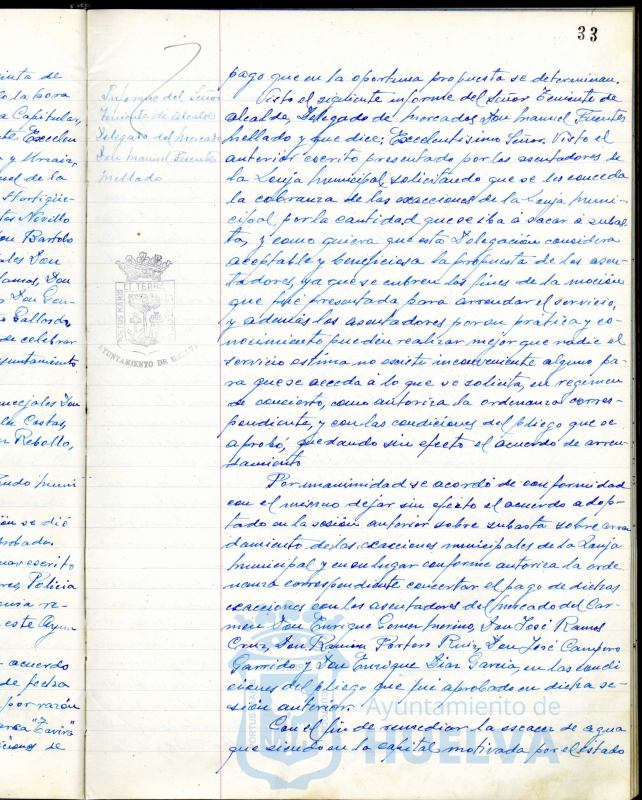 33
pago que en la oportuna propuesta se determinan.
Visto el siguiente informe del Señor Teniente de
Alcalde, Delegado de Mercados Don Manuel Fuentes
Mellado y que dice; Excelentísimo Señor. Visto el
anterior escrito presentado por los asentadores de
la Lonja Municipal, solicitando que se les conceda
la cobranza de las exacciones de la Lonja Muni-
cipal por la cantidad que se iba á sacar á subas-
ta, y como quiera que esta Delegación considera
aceptable y beneficiosa la propuesta de los asen-
tadores, ya que se cubren los fines de la moción
que fué presentada para arrendar el servicio,
y además los asentadores por su práctica y co-
nocimiento pueden realizar mejor que nadie el
servicio estima no existe inconveniente alguno pa-
ra que se acceda á lo que se solicita, en regimen
de concierto, como autoriza la ordenanza corres-
pondiente, y con las condiciones del pliego que se
aprobó, quedando sin efecto el acuerdo de arren-
damiento
Por unanimidad se acordó de conformidad
con el mismo dejar sin efecto el acuerdo adop-
tado en la sesión anterior sobre subasta sobre arren
damiento de las exacciones municipales de la Lonja
Municipal y en su lugar conforme autoriza la orde
nanza correspondiente concertar el pago de dichas
exacciones con los asentadores del Mercado del Car-
men Don Enrique Gomez Merino, Don José Ramos
Cruz, Don Ramón Portero Ruiz, Don José Campero
Garrido y Don Enrique Diaz Garcia, en las condi
ciones del pliego que fué aprobado en dicha se-
sión anterior.
Con el fin de remediar la escasez de agua
que siendo en la capital motivada por el estado
Informe del Señor
Teniente de Alcalde
Delegado del Mercado
Don Manuel Fuentes
Mellado
AYUNTAMIENTO DE HUELVA
Ayuntamiento de
HUELVA
de
la hora
Capitular,
Excelen
y
de la
Novillo
Don Bartolo
Don
Don
Gallardo,
se celebrar
Ayuntamiento
Concejales Don
Costas,
Rebollo,
se dió
escrito
Policia
re-
este Ayun
acuerdo
de fecha
por razón
"Tavira"
se